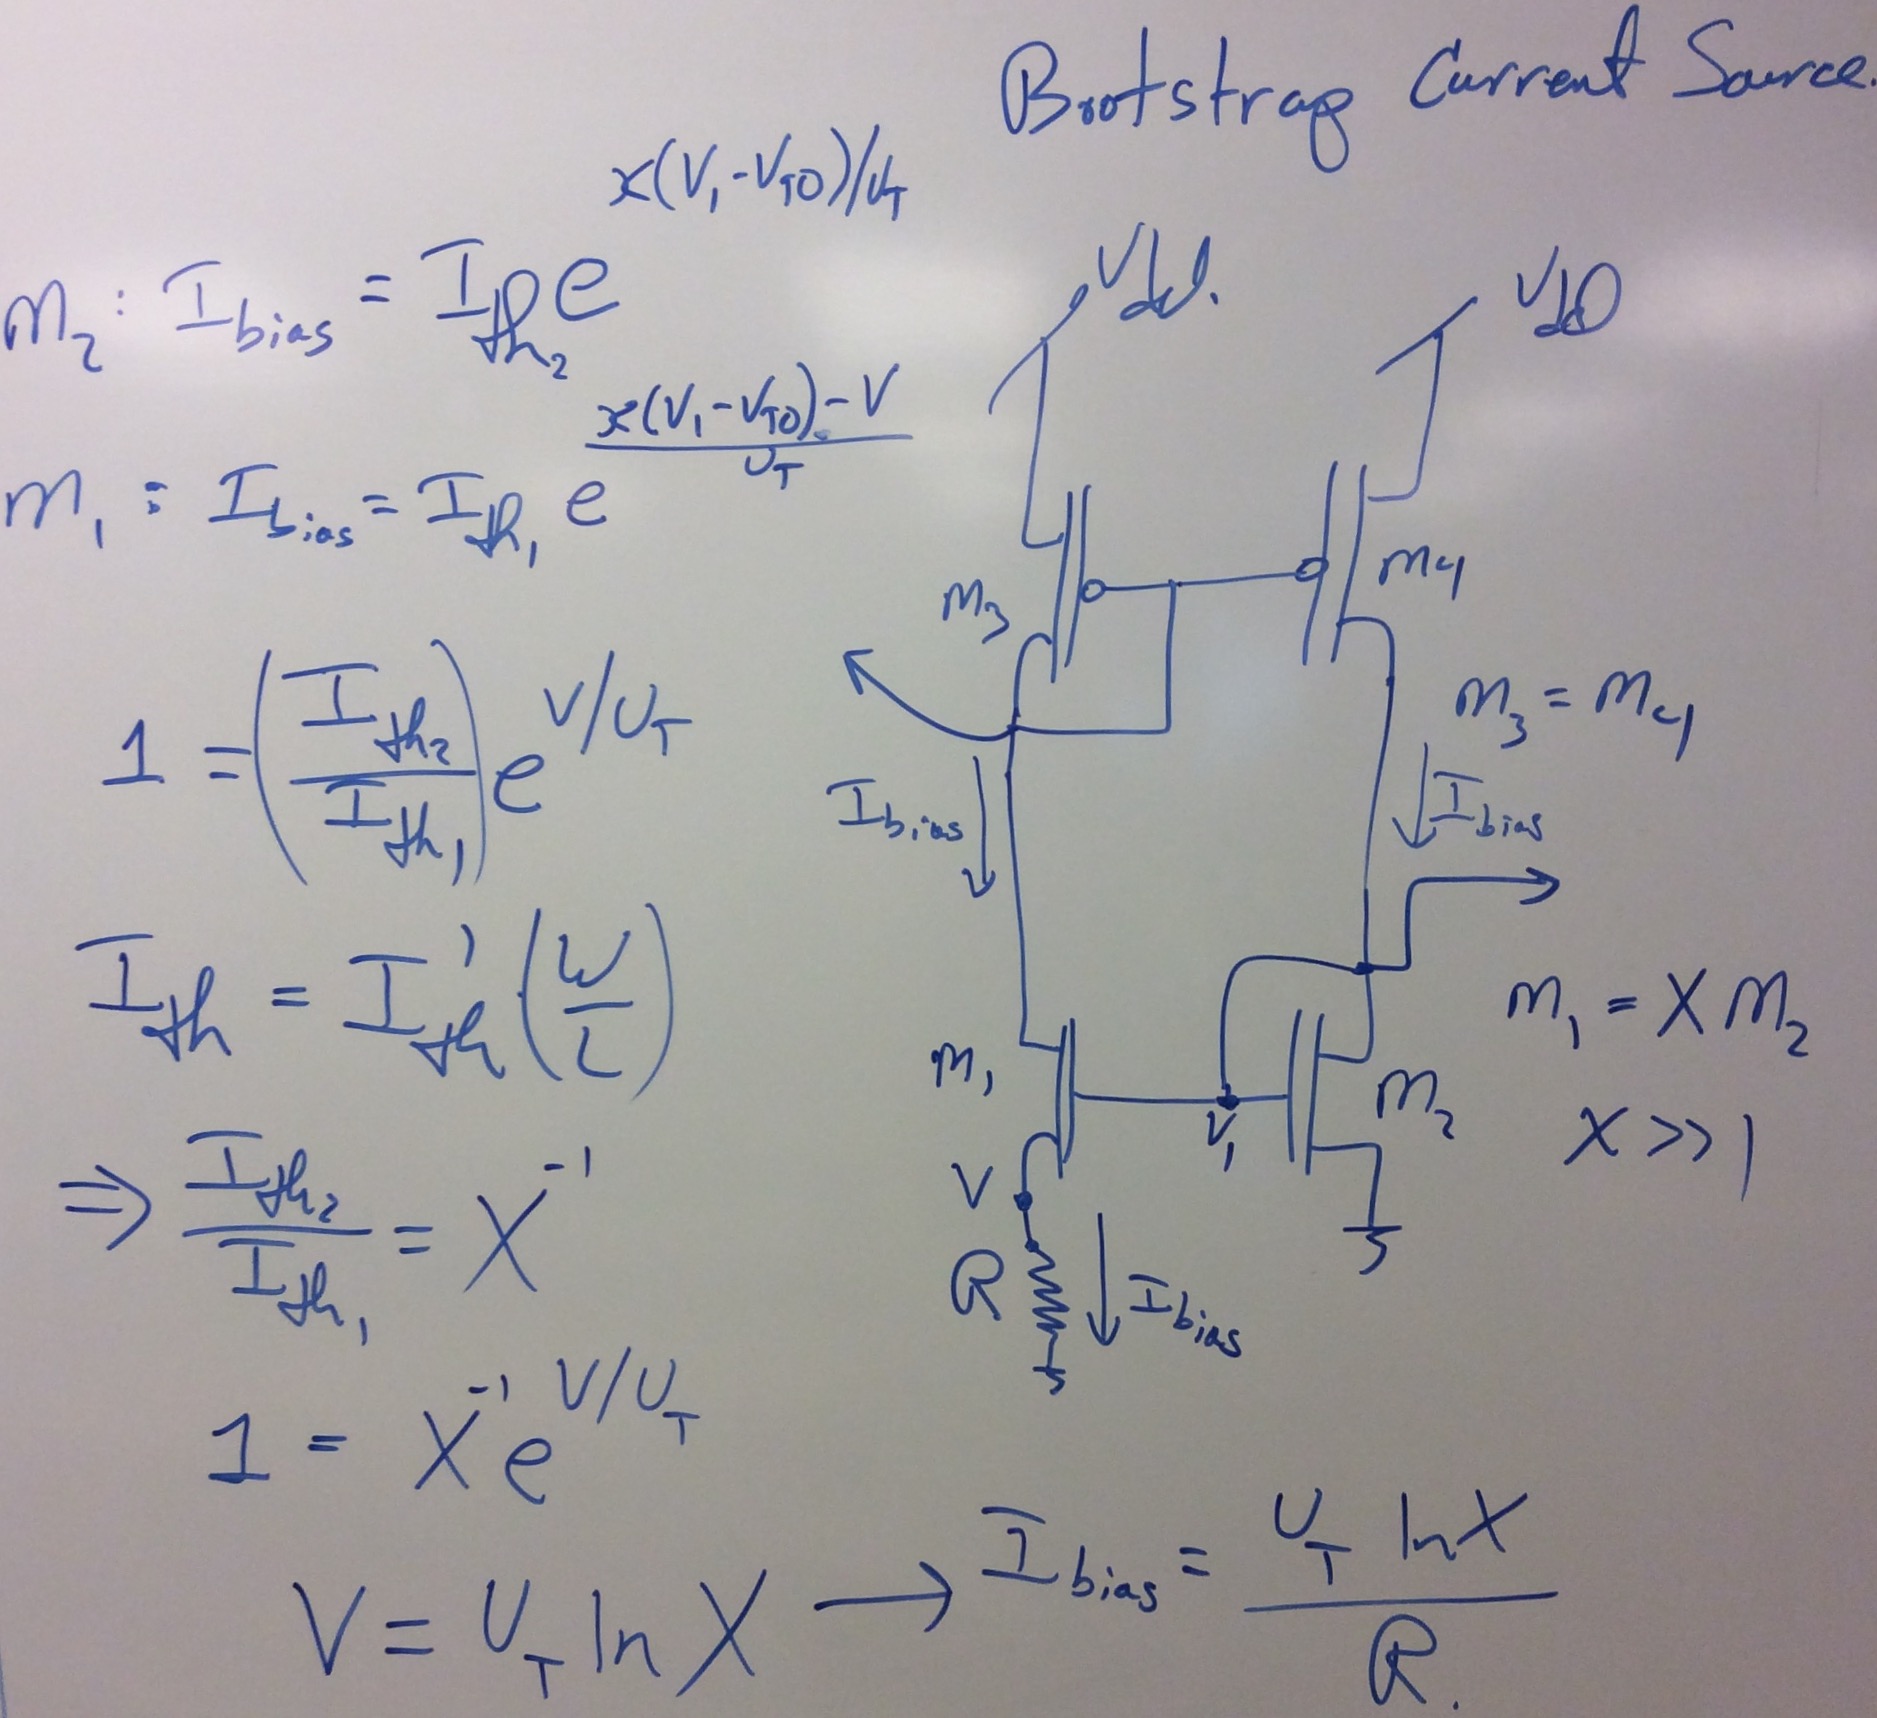 Bootstrap Current Source.
M₂ : I_bias = I_th₂ e^(κ(V₁-V_T0)/U_T)
M₁ : I_bias = I_th₁ e^((κ(V₁-V_T0)-V)/U_T)
1 = (I_th₂/I_th₁) e^(V/U_T)
I_th = I'_th (W/L)
⇒ I_th₂/I_th₁ = X⁻¹
1 = X⁻¹ e^(V/U_T)
V = U_T ln X → I_bias = U_T ln X / R.
Vdd.
VdD
M₃
M4
M₃ = M4
I_bias
I_bias
M₁
V₁
M₂
M₁ = X M₂
X >> 1
V
R
I_bias